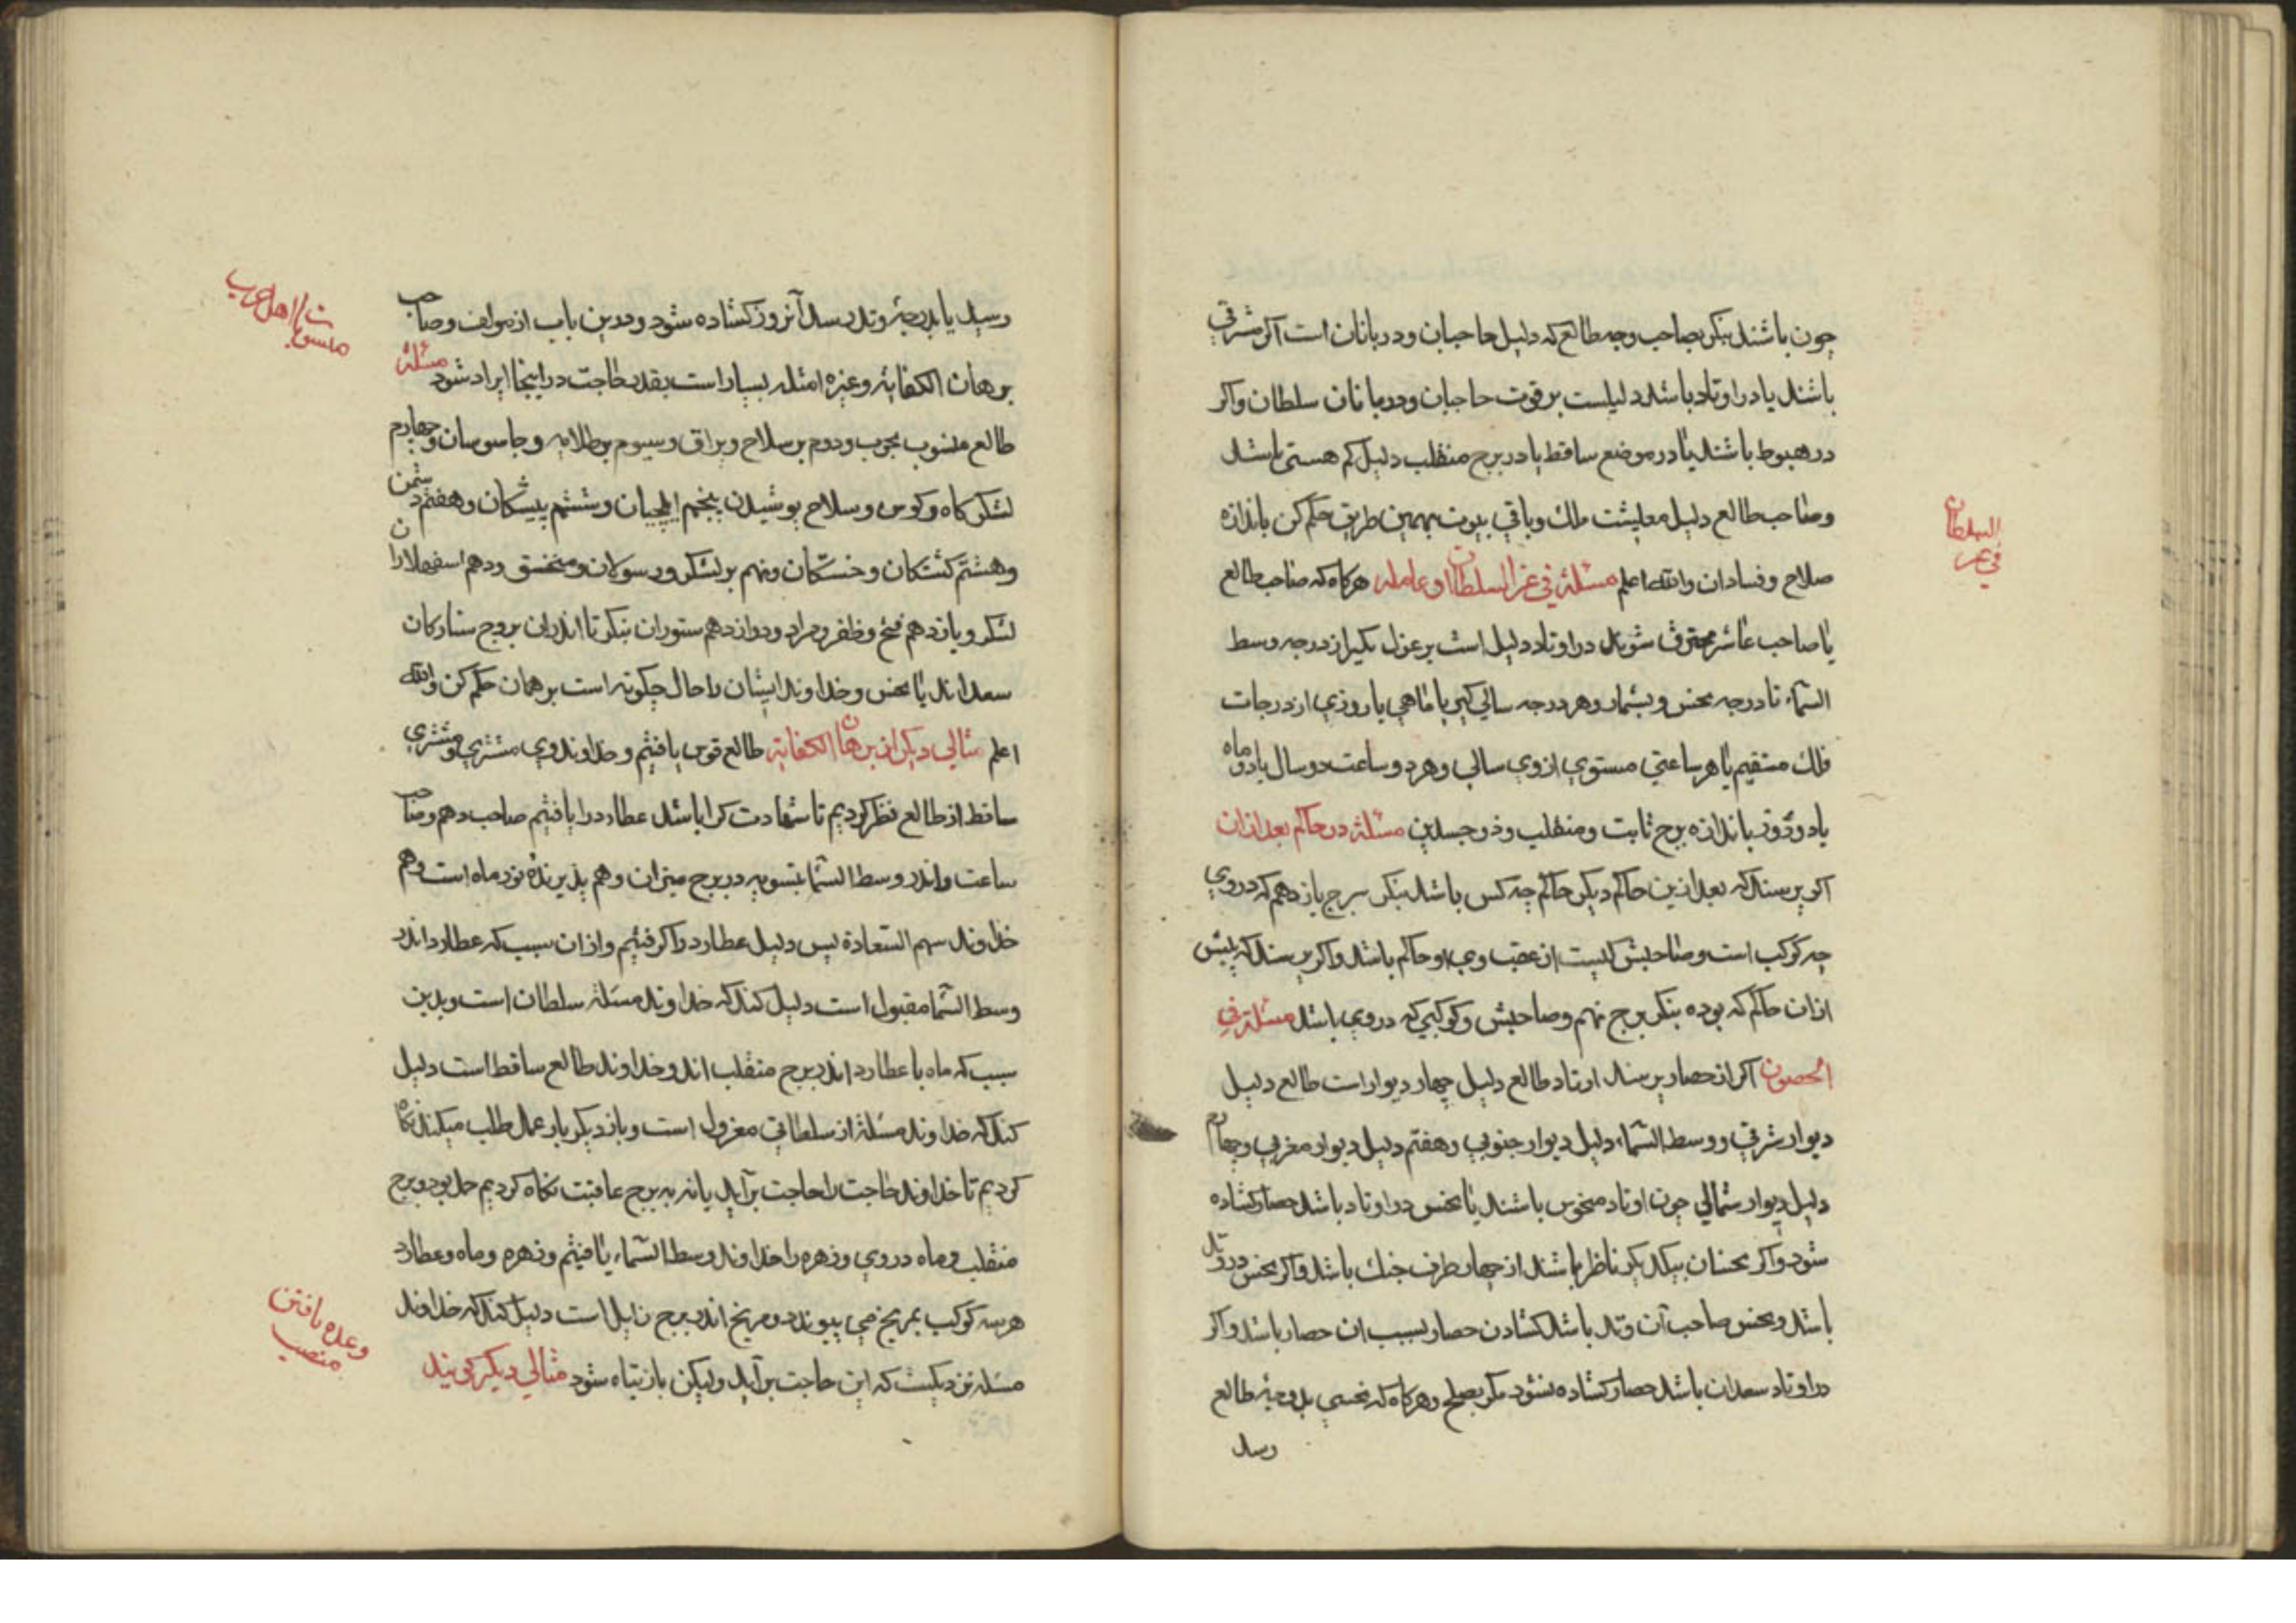 چون باشند بنکر بصاحب وجه طالع که دلیل حاجبان و دربانان است اکر مشرقی
باشند یا در اوتاد باشد دلیلست بر قوت حاجبان و دربانان سلطان واکر
در هبوط باشند یا در موضع ساقط یا در برج منقلب دلیل کم هستی باشد
وصاحب طالع دلیل معیشت ملک وباقی بیوت بهمین طریق حکم کن باندازه
صلاح وفساد ان والله اعلم مسئلة فی عزل السلطان او عامله هرکاه که صاحب طالع
یا صاحب عاشر محترق شوند در اوتاد دلیل است بر عزل بکیر از درجه وسط
السماء تا درجه نحس وبشمار وهر درجه سالی کیر یا ماهی یا روزی از درجات
فلک مستقیم یا هر ساعتی مستوی ازوی سالی وهر دو ساعت دو سال یا دو ماه
یا دو روز باندازه برج ثابت ومنقلب وذو جسدین مسئلة در حاکم بعد ازان
اکر پرسند که بعد ازین حاکم دیکر حاکم چه کس باشد بنکر ببرج یازدهم که در وی
چه کوکب است وصاحبش کیست از عقب وی او حاکم باشد واکر پرسند که پیش
ازان حاکم که بوده بنکر برج نهم وصاحبش وکوکبی که در وی باشد مسئلة فی
الحصون اکر از حصار پرسند اوتاد طالع دلیل چهار دیوار است طالع دلیل
دیوار شرقی ووسط السماء دلیل دیوار جنوبی وهفتم دلیل دیوار مغربی وچهارم
دلیل دیوار شمالی چون اوتاد منحوس باشند یا نحس در اوتاد باشد حصار کشاده
شود واکر نحسان بیکدیکر ناظر باشند از چهار طرف جنک باشد واکر نحس در وتد
باشد ونحس صاحب آن وتد باشد کشادن حصار بسبب ان حصار باشد واکر
در اوتاد سعدان باشد حصار کشاده نشود مکر بصلح وهرکاه که نحسی بدرجهٔ طالع
رسد
السلطان
فی عزل
رسید یا بدرجهٔ وتد رسد آنروز کشاده شود ودرین باب از مولف وصاحب
برهان الکفایة وغیره امثله بسیار است بقدر حاجت در اینجا ایراد شود مسئلة
طالع منسوب بحرب ودوم بر سلاح ویراق وسیوم بر طلایه وجاسوسان وچهارم
لشکرکاه وکوس وسلاح پوشیدن پنجم ایلچیان وششم پیشکان وهفتم دشمن
وهشتم کشتکان وخستکان ونهم بر لشکر ورسولان ومنجنیق ودهم اسفهلاران
لشکر ویازدهم فتح وظفر ومراد ودوازدهم ستوران بنکر تا اندران بروج ستارکان
سعد اند یا نحس وخداوند ایشان را حال چکونه است بر همان حکم کن والله
اعلم مثالی دیکر از برهان الکفایة طالع قوس یافتیم وخداوند وی مشتری ومشتری
ساقط از طالع نظر کردیم تا شهادت کرا باشد عطارد را یافتیم صاحب دهم وصاحب
ساعت واندر وسط السما بتسویه در برج میزان وهم پذیرندهٔ نور ماه است وهم
خداوند سهم السعادة پس دلیل عطارد را کرفتیم وازان سبب که عطارد اندر
وسط السما مقبول است دلیل کند که خداوند مسئلة سلطان است وبدین
سبب که ماه با عطارد اندر برج منقلب اند وخداوند طالع ساقط است دلیل
کند که خداوند مسئلة از سلطانی معزول است وباز دیکر بار عمل طلب میکند نکاه
کردیم تا خداوند حاجت را حاجت برآید یا نه به برج عاقبت نکاه کردیم حمل بود وبرج
منقلب وماه در وی وزهره را خداوند وسط السماء یافتیم وزهره وماه وعطارد
هر سه کوکب بمریخ می پیوندد ومریخ اندر برج زایل است دلیل کند که خداوند
مسئله نزدیکست که این حاجت برآید ولیکن باز تباه شود مثالی دیکر
منسوبات اهل حرب
وعده یافتن
منصب